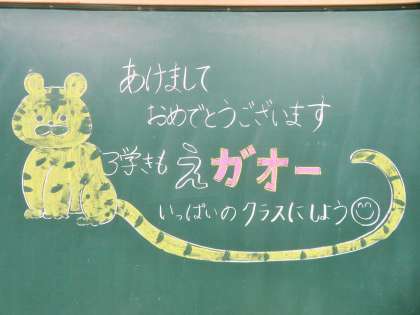 あけまして
おめでとうございます
3学きも えガオー
いっぱいの クラスにしよう